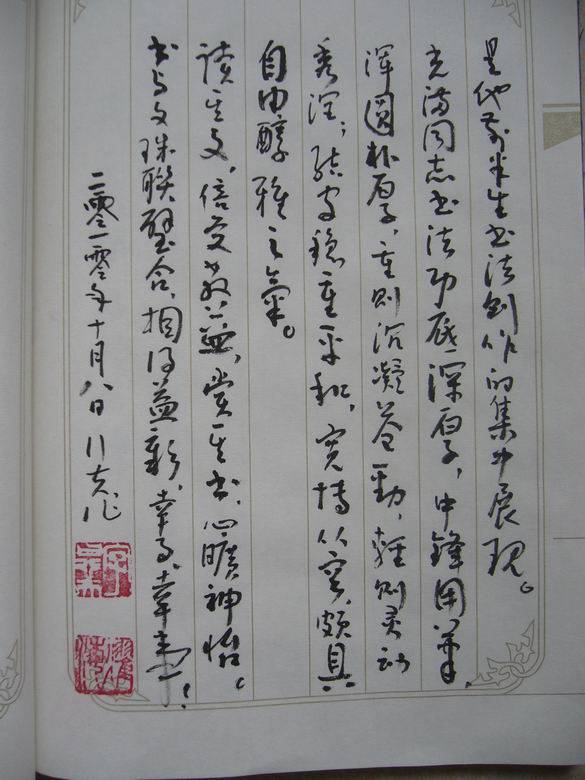 是他前半生书法创作的集中展现。
光满同志书法功底深厚，中锋用笔，
浑圆朴厚，重则沉凝苍劲，轻则灵动
秀润；结字稳重平和，宽博从容，颇具
自由醇雅之气。
读其文，倍受教益，赏其书，心旷神怡。
书与文珠联璧合，相得益彰，幸事幸事！
二零一零年十月八日